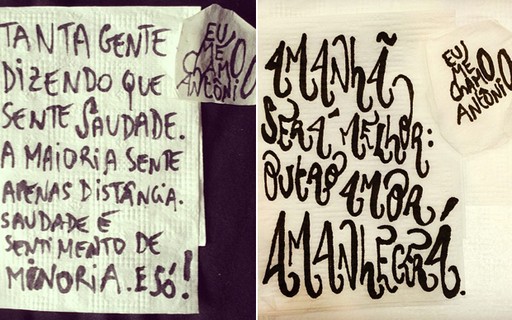 TANTA GENTE
DIZENDO QUE
SENTE SAUDADE.
A MAIORIA SENTE
APENAS DISTÂNCIA.
SAUDADE É
SENTIMENTO DE
MINORIA. E SÓ!
EU
ME
CHAMO
ANTÔNIO
AMANHÃ
SERÁ MELHOR:
OUTRO AMOR
AMANHECERÁ.
EU
ME
CHAMO
ANTÔNIO